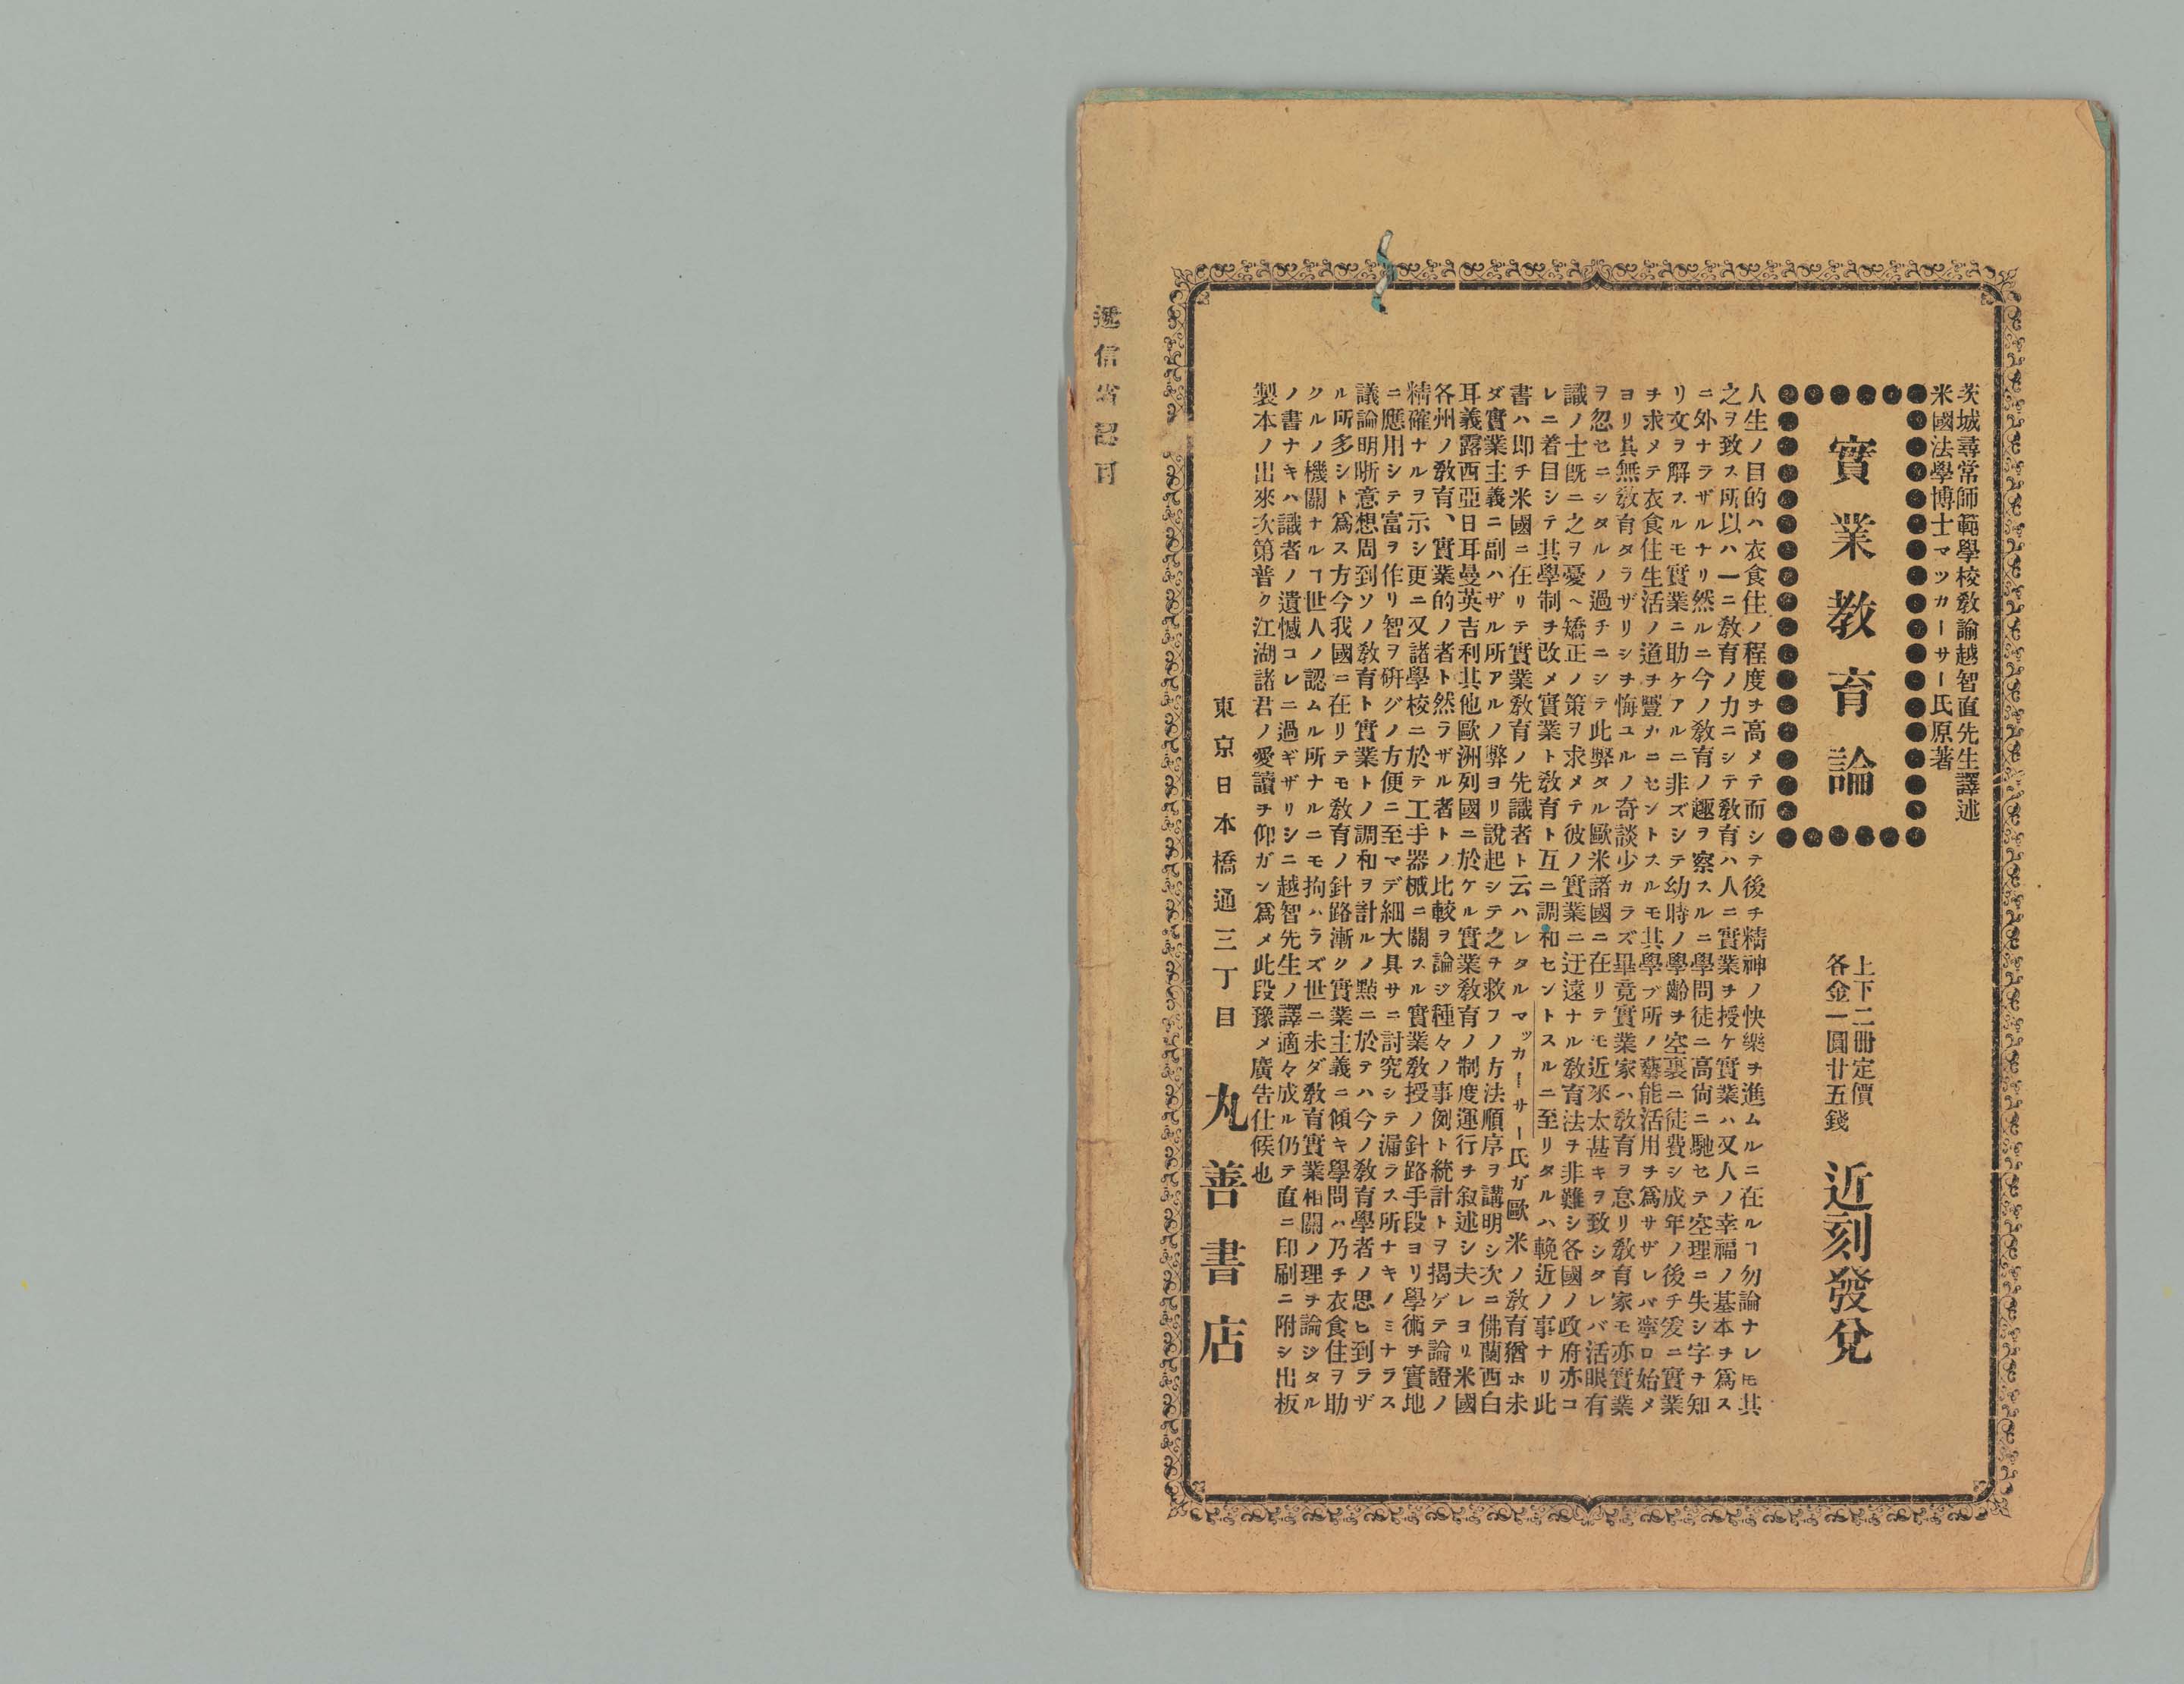 茨城尋常師範學校敎諭越智直先生譯述
米國法學博士マツカーサー氏原著
實業教育論
上下二冊定價
各金一圓廿五錢
近刻發兌
人生ノ目的ハ衣食住ノ程度ヲ高メテ而シテ後チ精神ノ快樂ヲ進ムルニ在ルヿ勿論ナレ𪜈其
之ヲ致ス所以ハ一ニ敎育ノ力ニシテ敎育ハ人ニ實業ヲ授ケ實業ハ又人ノ幸福ノ基本ヲ爲ス
ニ外ナラザルナリ然ルニ今ノ敎育ノ趣ヲ察スルニ學問徒ニ高尙ニ馳セテ空理ニ失シ字ヲ知
リ文ヲ解スルモ實業ニ助ケアルニ非ズシテ幼時ノ學齡ヲ空裏ニ徒費シ成年ノ後チ爰ニ實業
ヲ求メテ衣食住生活ノ道ヲ豐カニセントスルモ其學ブ所ノ藝能活用ヲ爲サザレバ寧ロ始メ
ヨリ其無敎育タラザリシヲ悔ユルノ奇談少カラズ畢竟實業家ハ敎育ヲ怠リ敎育家モ亦實業
ヲ忽セニシタルノ過チニシテ此弊タル歐米諸國ニ在リテモ近來太甚キヲ致シタレバ活眼有
識ノ士旣ニ之ヲ憂ヘ矯正ノ策ヲ求メテ彼ノ實業ニ迂遠ナル敎育法ヲ非難シ各國ノ政府亦コ
レニ着目シテ其學制ヲ改メ實業ト敎育ト互ニ調和セントスルニ至リタルハ輓近ノ事ナリ此
書ハ卽チ米國ニ在リテ實業敎育ノ先識者ト云ハレタルマッカーサー氏ガ歐米ノ敎育猶ホ未
ダ實業主義ニ副ハザル所アルノ弊ヨリ說起シテ之ヲ救フノ方法順序ヲ講明シ次ニ佛蘭西白
耳義露西亞日耳曼英吉利其他歐洲列國ニ於ケル實業敎育ノ制度運行ヲ叙述シ夫レヨリ米國
各州ノ敎育、實業的ノ者ト然ラザル者トノ比較ヲ論ジ種々ノ事例ト統計トヲ揭ゲテ論證ノ
精確ナルヲ示シ更ニ又諸學校ニ於テ工手器械ニ關スル實業敎授ノ針路手段ヨリ學術ヲ實地
ニ應用シテ富ヲ作リ智ヲ硏グノ方便ニ至マデ細大具サニ討究シテ漏ラス所ナキノミナラス
議論明晰意想周到ソノ敎育ト實業トノ調和ヲ計ルノ點ニ於テハ今ノ敎育學者ノ思ヒ到ラザ
ル所多シト爲ス方今我國ニ在リテモ敎育ノ針路漸ク實業主義ニ傾キ學問ハ乃チ衣食住ヲ助
クルノ機關ナルヿ世人ノ認ムル所ナルニモ拘ハラズ世ニ未ダ敎育實業相關ノ理ヲ論ジタル
ノ書ナキハ識者ノ遺憾コレニ過ギザリシニ越智先生ノ譯適々成ル仍テ直ニ印刷ニ附シ出板
製本ノ出來次第普ク江湖諸君ノ愛讀ヲ仰ガン爲メ此段豫メ廣告仕候也
東京日本橋通三丁目 丸善書店
遞信省認可